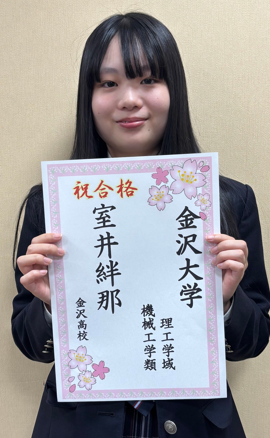 祝合格
金沢大学
理工学域
機械工学類
室井絆那
金沢高校